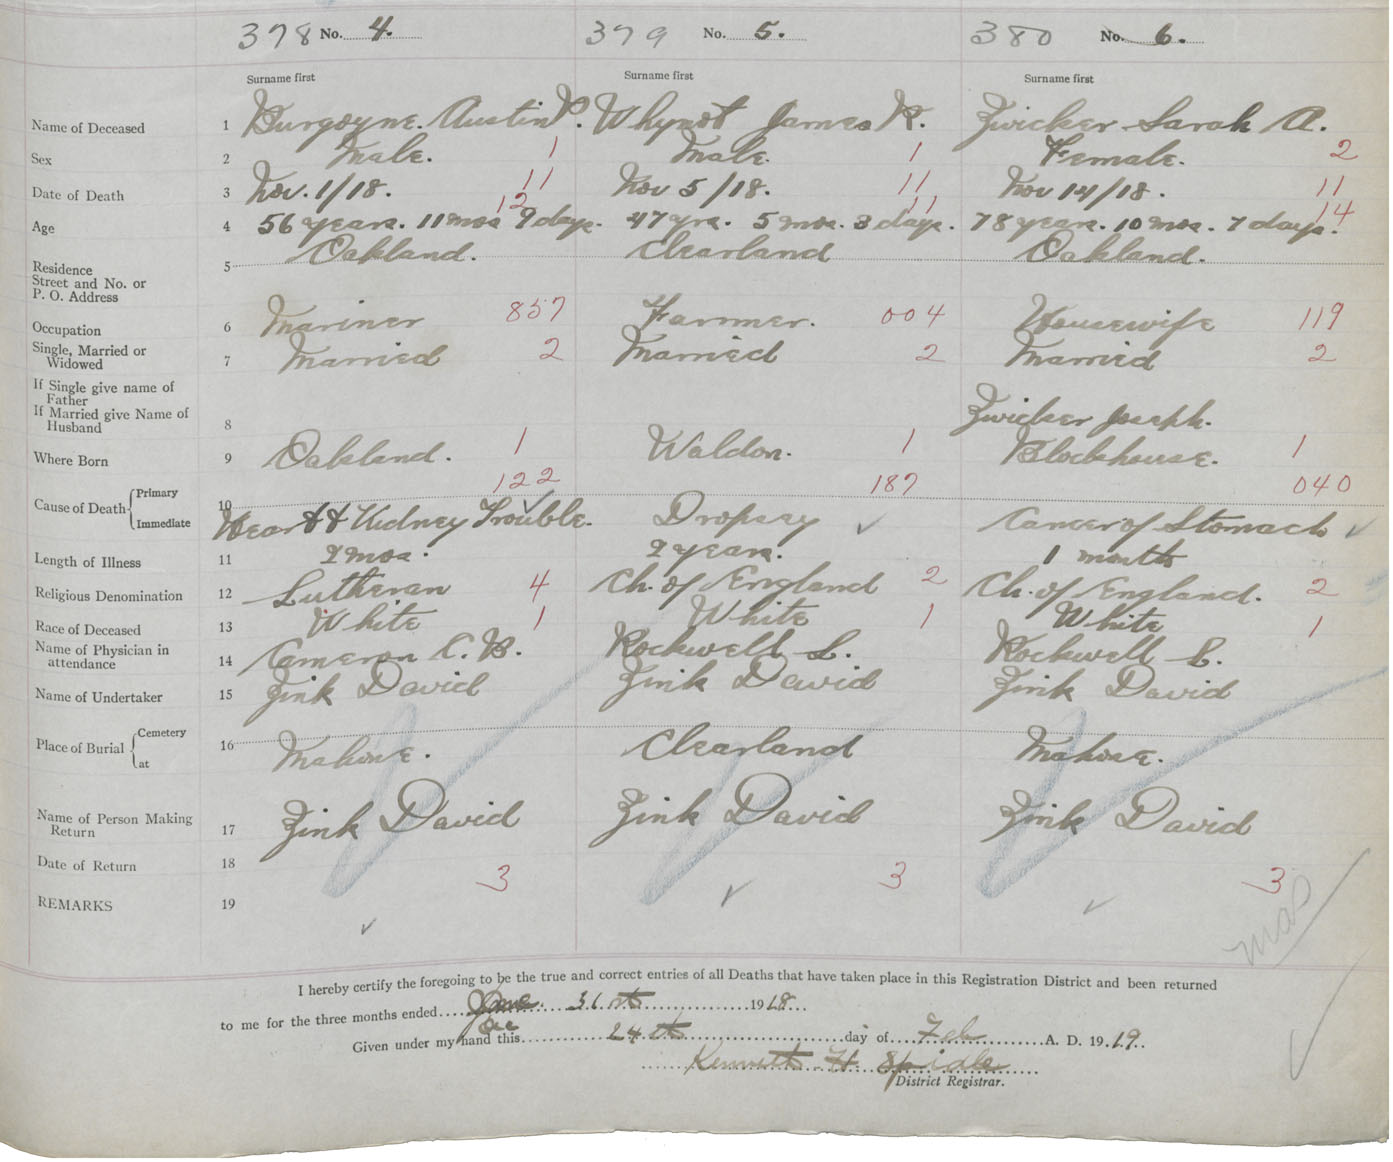 378 No. 4. 379 No. 5. 380 No. 6.
Surname first Surname first Surname first
Name of Deceased 1 Burgoyne. Austin P. Whynot James R. Zwicker Sarah A.
Sex 2 Male. 1 Male. 1 Female. 2
Date of Death 3 Nov. 1/18. 11 Nov 5/18. 11 Nov 14/18. 11
12 11 14
Age 4 56 years. 11 mos 9 days. 47 yrs. 5 mos. 3 days. 78 years. 10 mos. 7 days.
Residence
Street and No. or
P. O. Address 5 Oakland. Clearland Oakland.
Occupation 6 Mariner 857 Farmer. 004 Housewife 119
Single, Married or
Widowed 7 Married 2 Married 2 Married 2
If Single give name of
Father
If Married give Name of
Husband 8 Zwicker Joseph.
Where Born 9 Oakland. 1 Waldon. 1 Blockhouse. 1
122 187 040
Cause of Death { Primary
Immediate 10 Heart & Kidney Trouble. Dropsy Cancer of Stomach
Length of Illness 11 2 mos. 2 years. 1 month
Religious Denomination 12 Lutheran 4 Ch. of England 2 Ch. of England. 2
Race of Deceased 13 White 1 White 1 White 1
Name of Physician in
attendance 14 Cameron C. B. Rockwell L. Rockwell L.
Name of Undertaker 15 Zink David Zink David Zink David
Place of Burial { Cemetery
at 16 Mahone. Clearland Mahone.
Name of Person Making
Return 17 Zink David Zink David Zink David
Date of Return 18
3 3 3
REMARKS 19
I hereby certify the foregoing to be the true and correct entries of all Deaths that have taken place in this Registration District and been returned
to me for the three months ended June. 31 st 1918
Dec
Given under my hand this 24 th day of Feb A. D. 1919.
Kenneth H Spidle
District Registrar.